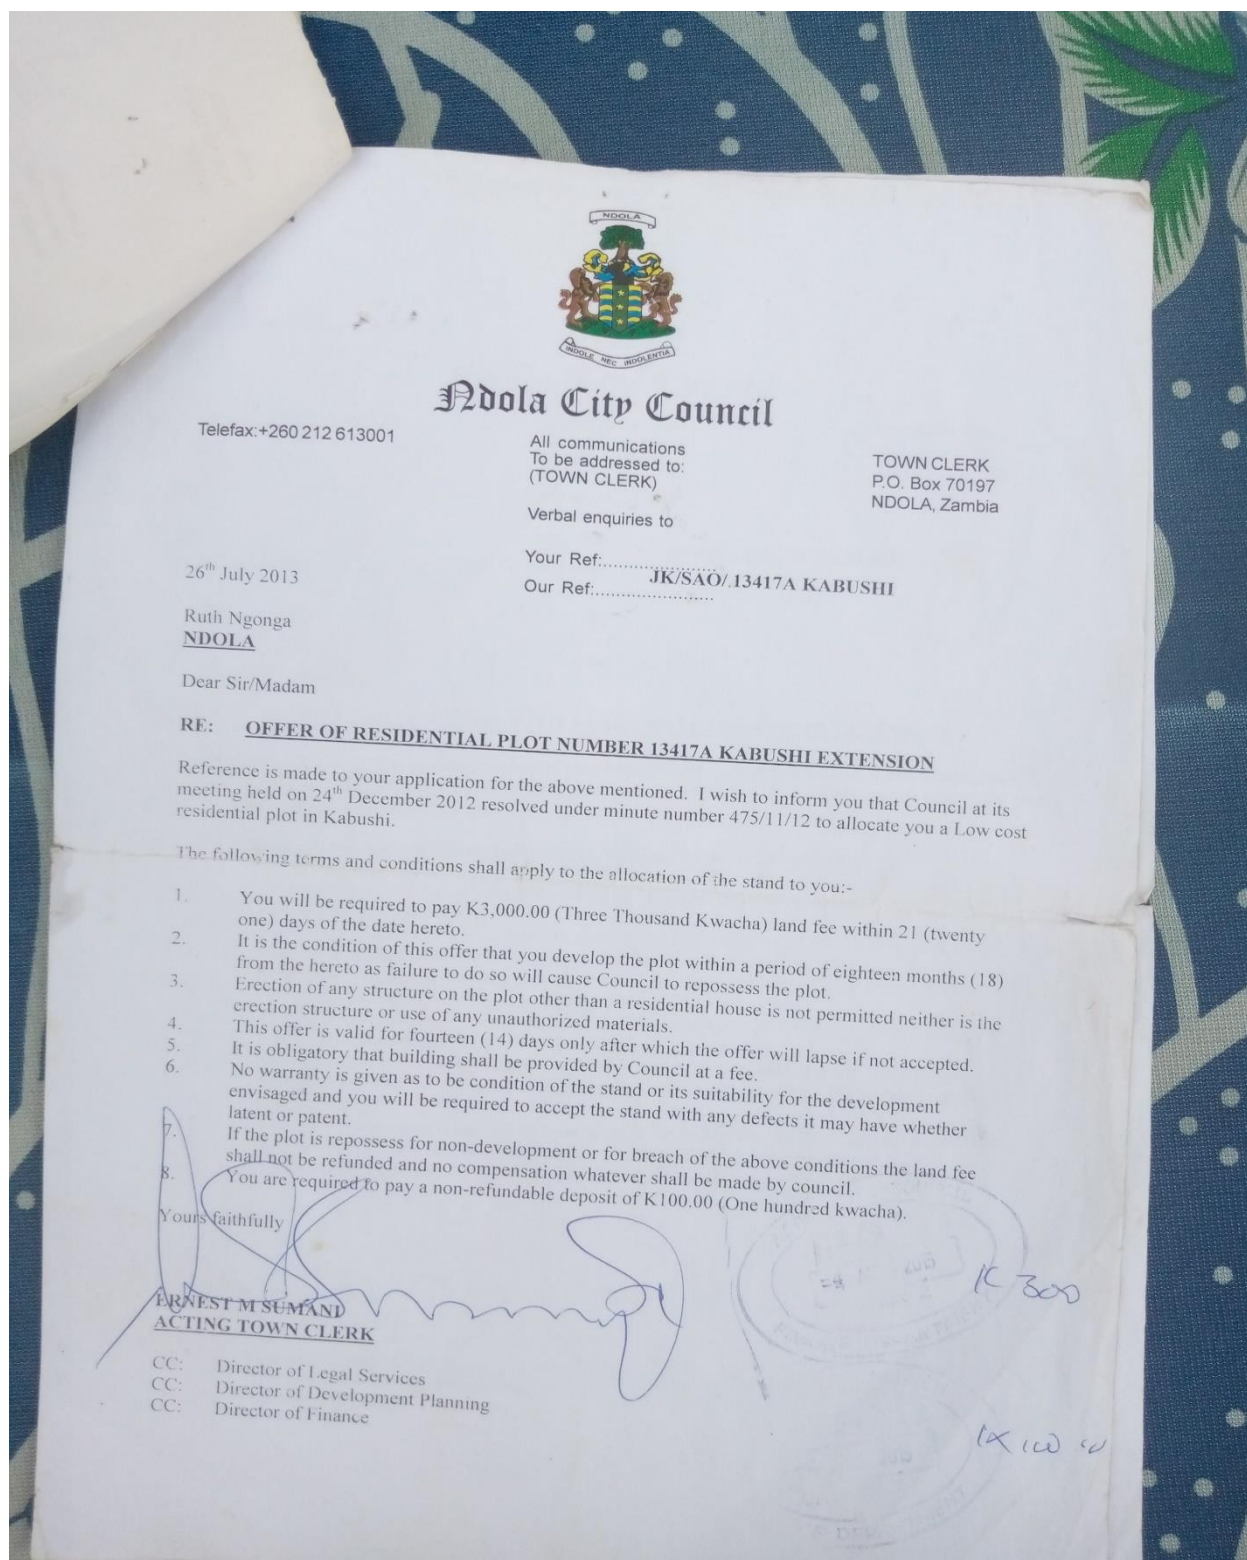 NDOLA
INDOLE NEC INDOLENTIA
Ndola City Council
Telefax:+260 212 613001
All communications
To be addressed to:
(TOWN CLERK)
TOWN CLERK
P.O. Box 70197
NDOLA, Zambia
Verbal enquiries to
Your Ref:......................
Our Ref:........................
JK/SAO/.13417A KABUSHI
26th July 2013
Ruth Ngonga
NDOLA
Dear Sir/Madam
RE: OFFER OF RESIDENTIAL PLOT NUMBER 13417A KABUSHI EXTENSION
Reference is made to your application for the above mentioned. I wish to inform you that Council at its
meeting held on 24th December 2012 resolved under minute number 475/11/12 to allocate you a Low cost
residential plot in Kabushi.
The following terms and conditions shall apply to the allocation of the stand to you:-
1. You will be required to pay K3,000.00 (Three Thousand Kwacha) land fee within 21 (twenty
one) days of the date hereto.
2. It is the condition of this offer that you develop the plot within a period of eighteen months (18)
from the hereto as failure to do so will cause Council to repossess the plot.
3. Erection of any structure on the plot other than a residential house is not permitted neither is the
erection structure or use of any unauthorized materials.
4. This offer is valid for fourteen (14) days only after which the offer will lapse if not accepted.
5. It is obligatory that building shall be provided by Council at a fee.
6. No warranty is given as to be condition of the stand or its suitability for the development
envisaged and you will be required to accept the stand with any defects it may have whether
latent or patent.
7. If the plot is repossess for non-development or for breach of the above conditions the land fee
shall not be refunded and no compensation whatever shall be made by council.
8. You are required to pay a non-refundable deposit of K100.00 (One hundred kwacha).
Yours faithfully
K 300
ERNEST M SUMANI
ACTING TOWN CLERK
CC: Director of Legal Services
CC: Director of Development Planning
CC: Director of Finance